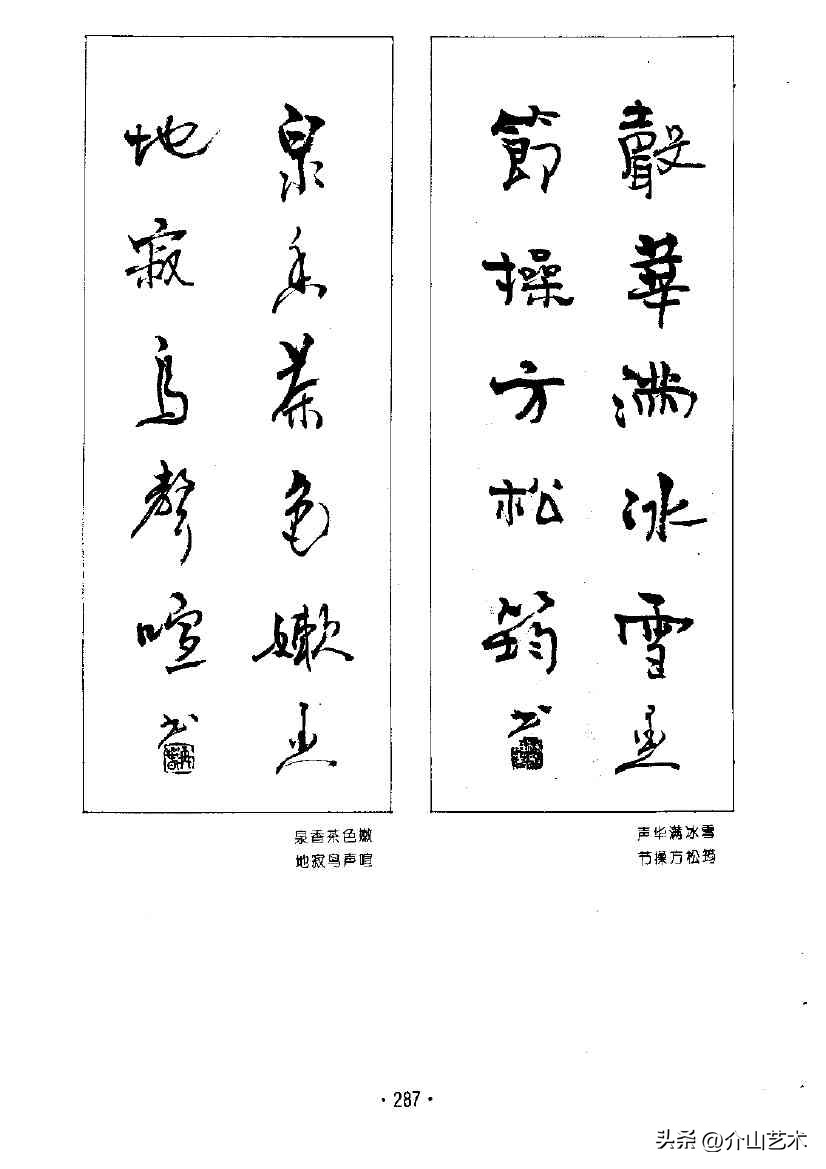 聲華滿冰雪
節操方松筠
书
泉香茶色嫩
地寂鳥聲喧
书
声华满冰雪
节操方松筠
泉香茶色嫩
地寂鸟声喧
·287·
头条 @介山艺术